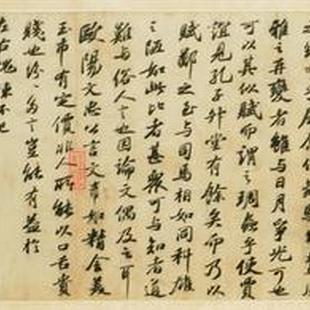 雅之再變者雖與日月爭光可也
可以其似賦而謂之琱蟲乎使賈
誼見孔子升堂有餘矣而乃以
賦鄙之至與司馬相如同科雄
之陋如此比者甚衆可與知者道
難與俗人言也因論文偶及之耳
歐陽文忠公言文章如精金美
玉市有定價非人所能以口舌貴
賤也紛紛多言豈能有益於
左右愧悚不已